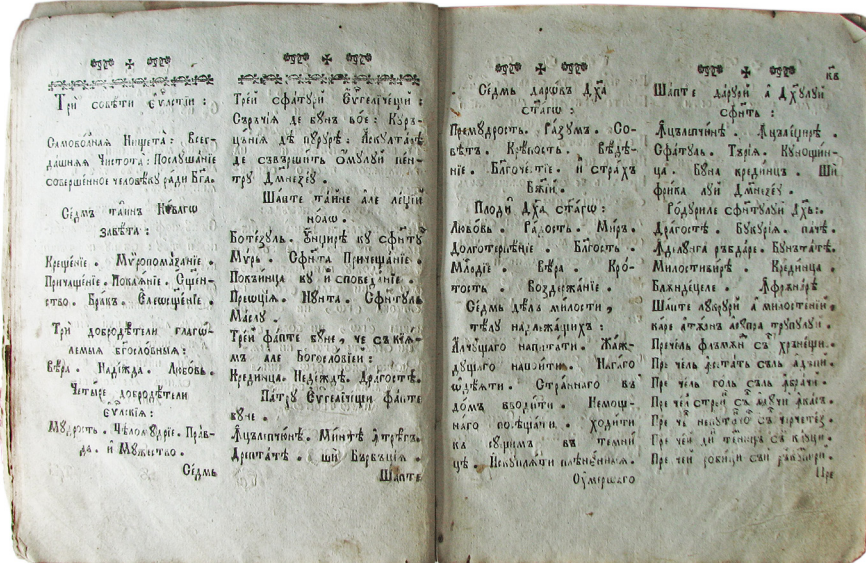 Три̑ совѣти еѵⷢ҇лстіи :
Самоволнаѧ Нищета : Всег-
дашнѧѧ Чистота : Послꙋшаніе
совершенное человѣкꙋ ради Бг҃а .
Седмь тайнъ Новагѡ
завѣта :
Крещеніе . Мѵропомазаніе .
Причащеніе . Покаѧніе . Сщ҃ен-
ство . Бракъ . Елеѡсщеніе .
Три добродѣтели глагѡ-
лемыѧ бг҃ословныѧ :
Вѣра . Надежда . Любовь .
Четыре добродѣтели
еѵⷢ҇лскіѧ :
Мꙋдрость . Чѣломꙋдріе . Прав-
да . и Мꙋжество .
Седмь
Трей сфатꙋри Еѵⷢ҇геличещи :
Сърачіѧ де бꙋнъ вое : Кꙋръ-
цъніѧ дѣ пꙋрꙋрѣ : Аскꙋлтарѣ
де съвършитъ ѡ҆мꙋлꙋй пен-
трꙋ Дмнезеꙋ .
Шапте тайне але леџій
ноаѡ .
Ботезꙋль . Ꙋнцире кꙋ сфинтꙋ
Мѵръ . Сфинта Причещаніе .
Покъинца кꙋ исповеданіе .
Преѡціѧ . Нꙋнта . Сфинтꙋль
Маслꙋ .
Трей фапте бꙋне , че съ кѧ-
мъ але Богословіеи :
Крединца . Недеждѣ . Драгостѣ .
Патрꙋ Еѵⷢ҇гелійщи фапте
бꙋне .
Ꙟцълипчюнѣ . Минтѣ ꙟтрѣгъ .
Дрептатѣ . ши Бърбъціѧ .
Шапте
Седмь даровъ Дх҃а
ст҃агѡ :
Премꙋдрость . Разꙋмъ . Со-
вѣтъ . Крѣпость . Вѣдѣ-
ніе . Благочестіе . и страхъ
Бж҃ій .
Плоди Дх҃а ст҃агѡ :
Любовь . Радость . Миръ .
Долготерпѣніе . Благость .
Млⷭ҇рдіе . Вѣра . Кро-
тость . Воздержаніе .
Седмь дѣлъ милости ,
тѣлꙋ надлежащихъ :
Алчꙋщаго напитати . Жаж-
дꙋщаго напоити . Нагаго
ѡдѣѧти . Страннаго въ
домъ вводити . Немощ-
наго посѣщати . ходити
къ сꙋщимъ въ темни
цѣ . Искꙋплѧти плѣненныѧ .
Оумершаго
кв
Шапте дарꙋри а Дх҃ꙋлꙋй
сфинтъ :
Ꙟцълипчюнѣ . Ꙟцълещирѣ .
Сфатꙋль . Търіѧ . Кꙋнощин-
ца . Бꙋна крединцъ . Ши
фрика лꙋй Дмнезеꙋ .
Родꙋриле сфинтꙋлꙋй Дх҃ъ :
Драгостѣ . Бꙋкꙋріѧ . пачѣ .
Ꙟделꙋнга ръбдаре . Бꙋнътатѣ .
Милостивирѣ . Крединца .
Блъндецеле . Ꙟфрънарѣ
Шапте лꙋкрꙋри а милостеніей .
каре атърнъ асꙋпра трꙋпꙋлꙋй .
Пречель флъмънд съ хрънещи .
Пре чель ꙟсетать съль адъпи .
Пре чель голь съль ꙟбрачи .
Пре чел стреин съ ль
Пре чель съ
Пре чей дин темницъ съ
Пре чей робици съй ръскꙋмпери .
Пре